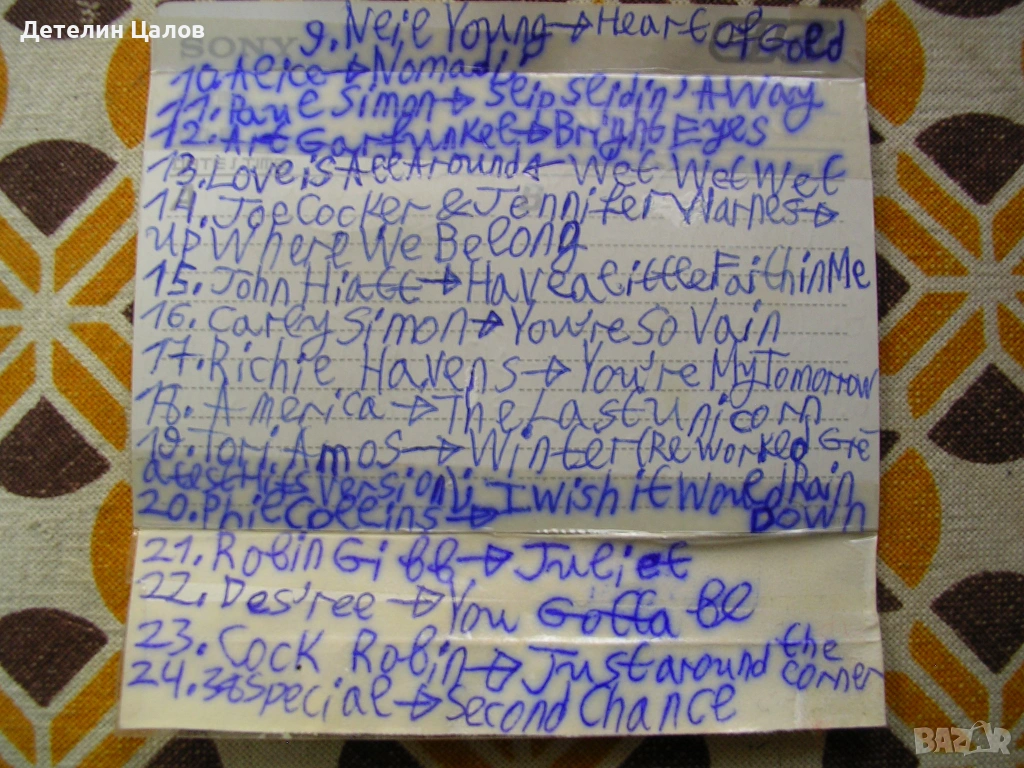 Детелин Цалов
SONY
9. Neil Young → Heart Of Gold
10. Alice → Nomadi
11. Paul Simon → Slip Slidin' Away
12. Art Garfunkel → Bright Eyes
13. Love is All Around ← Wet Wet Wet
14. Joe Cocker & Jennifer Warnes →
Up Where We Belong
15. John Hiatt → Have a little Faith in Me
16. Carly Simon → You're So Vain
17. Richie Havens → You're My Tomorrow
18. America → The Last Unicorn
19. Tori Amos → Winter (Reworked Gre
atest Hits Version)
20. Phil Collins → I Wish it Would Rain
Down
21. Robin Gibb → Juliet
22. Des'ree → You Gotta Be
23. Cock Robin → Just around the
corner
24. 38 Special → Second Chance
BAZAR